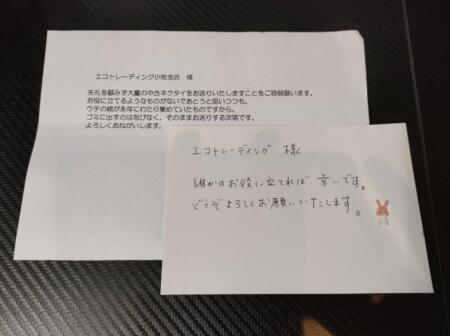 エコトレーディング小牧支店 様
失礼を顧みず大量の中古ネクタイをお送りいたしますことをご容赦願います。
お役に立てるようなものがないであろうと思いつつも、
ウチの親が永年にわたり集めていたものですから、
ゴミに出すのは忍びなく、そのままお送りする次第です。
よろしくおねがいします。
エコトレーディング 様
誰かのお役に立てれば、幸いです。
どうぞよろしくお願いいたします。